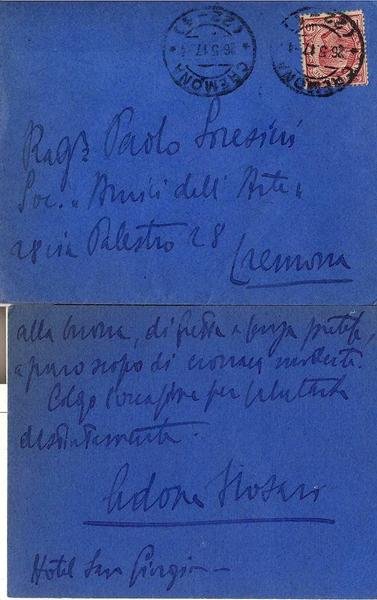 CREMONA
26.5.17
(22-4)
CREMONA
26.5.17
(22
Rag. Paolo Soresini
Soc. "Amici dell'Arte"
28 via Palestro 28
Cremona
alla buona, di fretta e senza pretese,
a puro scopo di cronaca modesta.
Colgo l'occasione per salutarla
distintamente.
Hotel San Giorgio